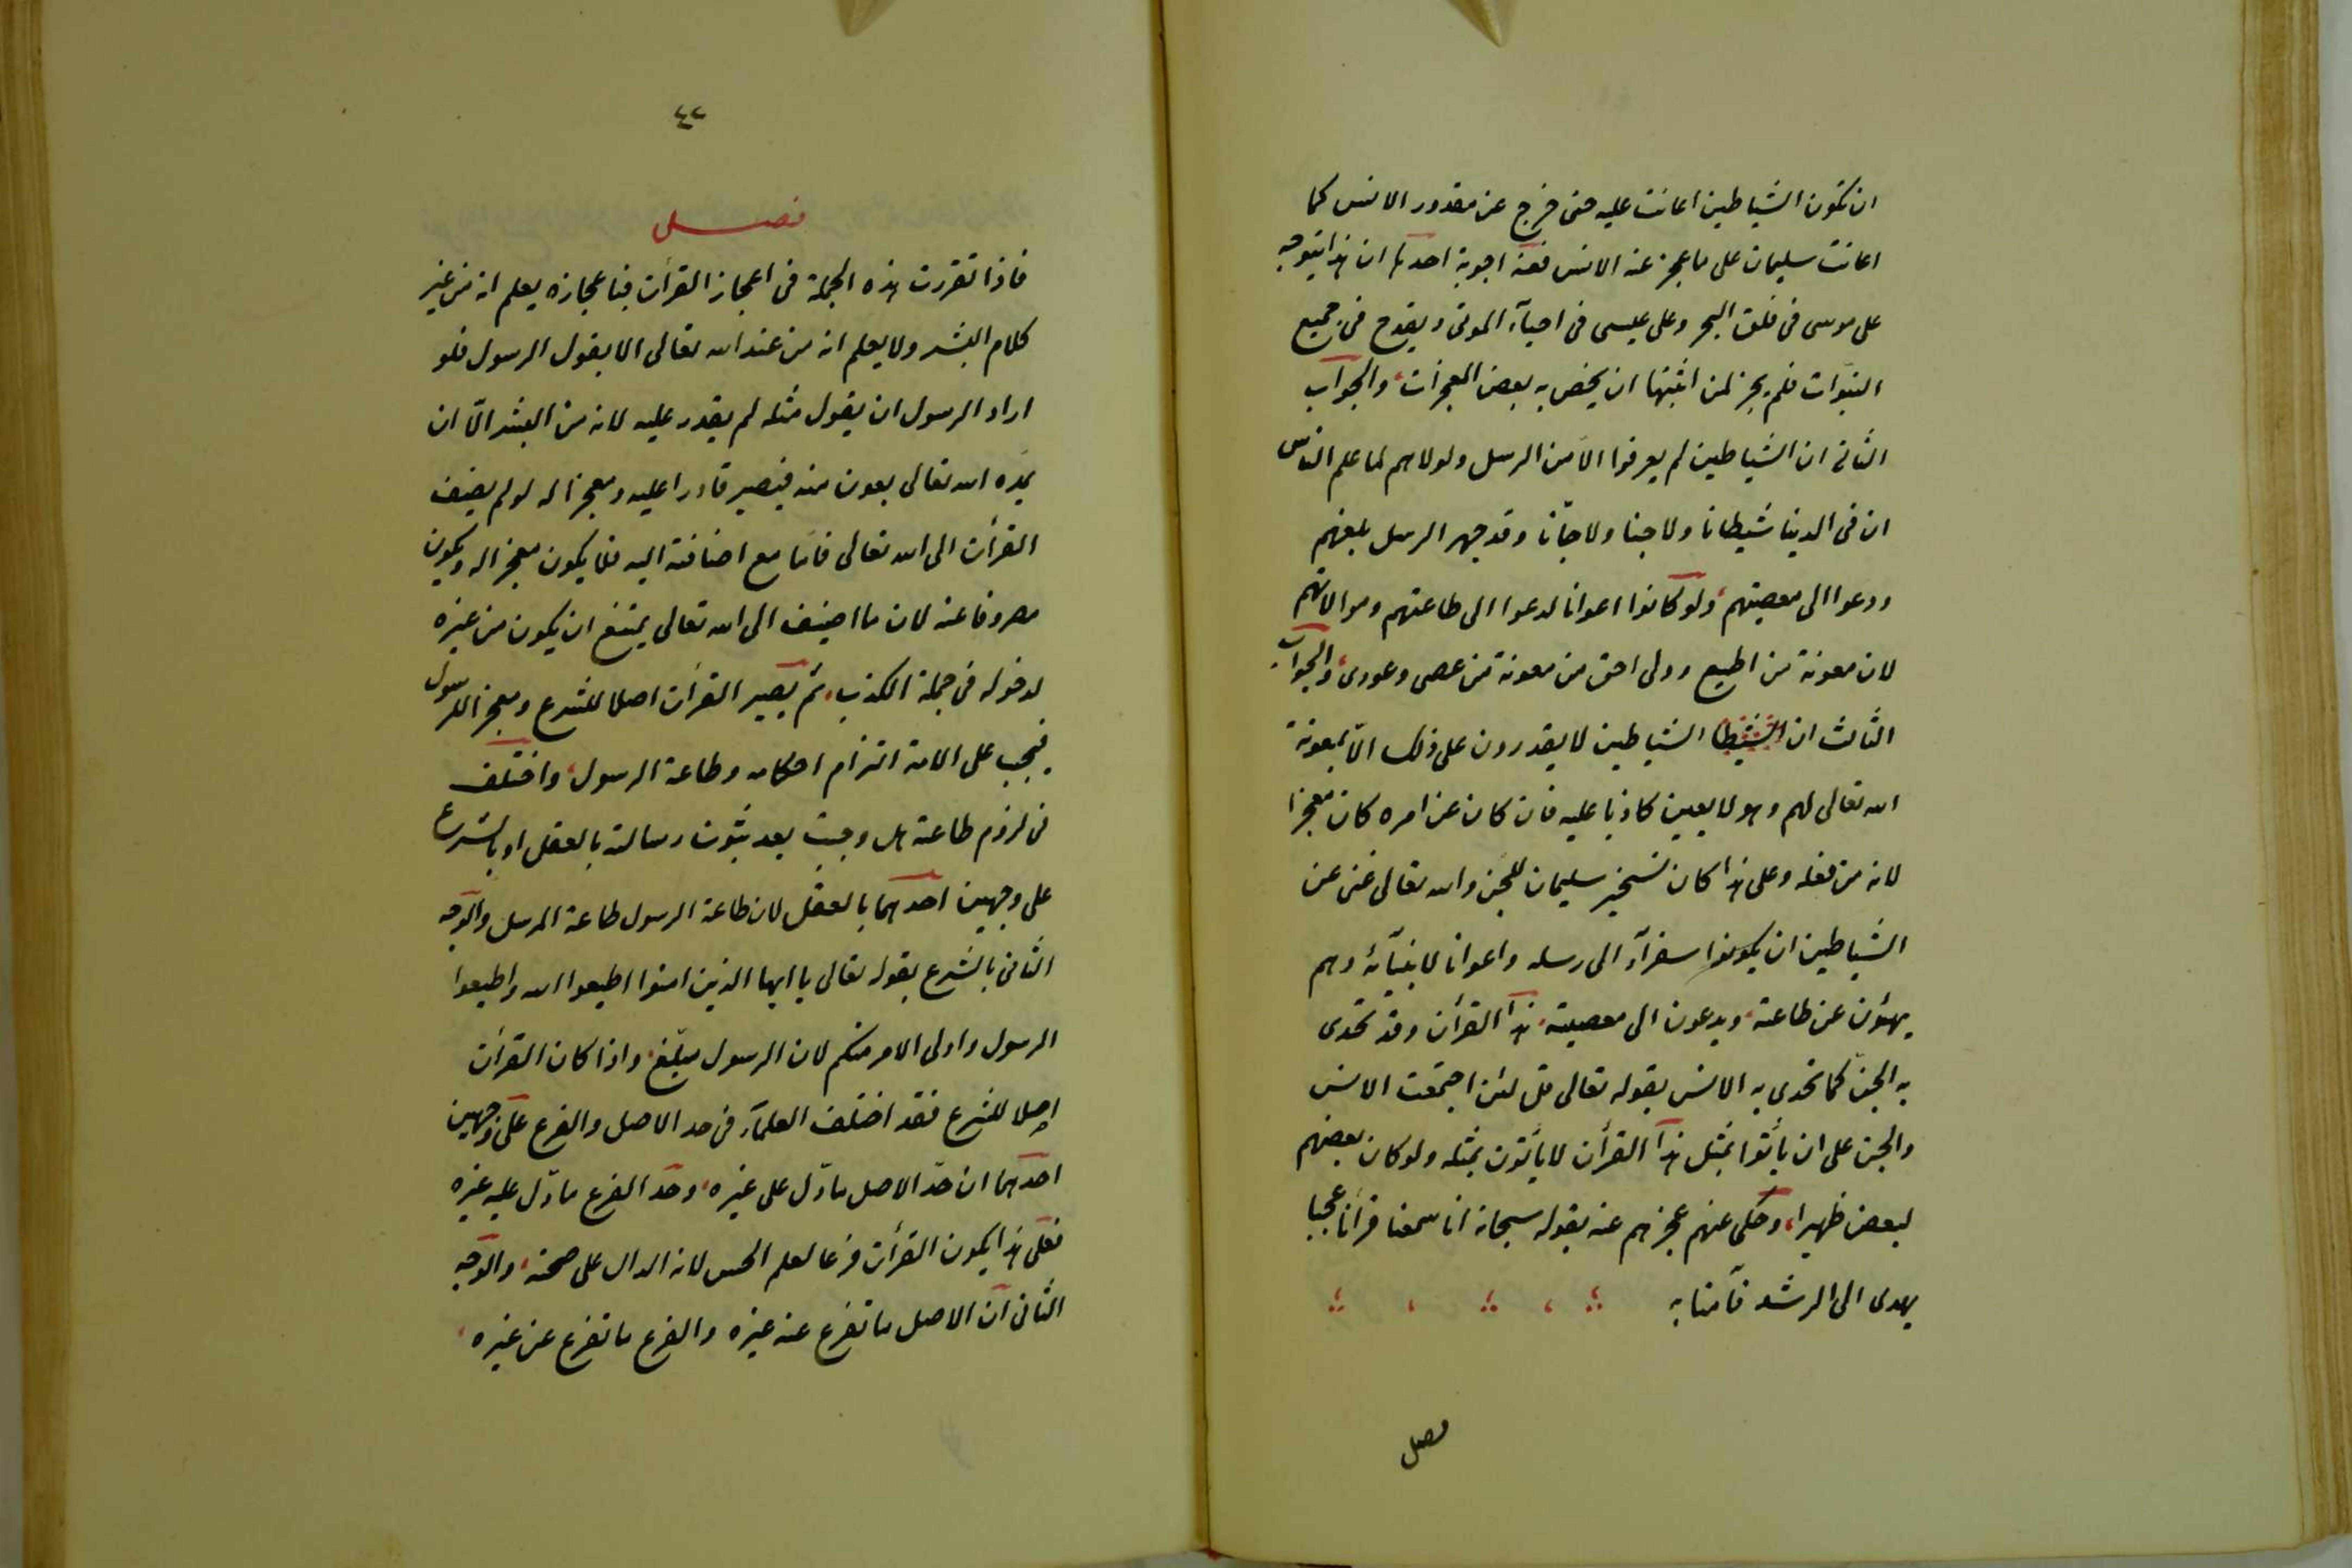 ان تكون الشياطين اعانت عليه حتى خرج عن مقدور الانس كما
اعانت سليمان على ما عجز عنه الانس فعنه اجوبة احدها ان هذا يتوجه
على موسى فى فلق البحر وعلى عيسى فى احيآء الموتى ويقدح فى جميع
النبوّات فلم يجز لمن اثبتها ان يخص به بعض المعجزات، والجواب
الثانى ان الشياطين لم يعرفوا الّا من الرسل ولولاهم لما علم الناس
ان فى الدينا شيطانا ولا جنا ولا جانّا وقد جهر الرسل بلعنهم
ودعوا الى معصيتهم، ولو كانوا اعوانا لدعوا الى طاعتهم وموالاتهم
لان معونة من اطيع وولى احق من معونة من عصى وعودى، والجواب
الثالث ان الشيطا الشياطين لا يقدرون على ذلك الّا بمعونة
الله تعالى لهم وهو لا يعين كاذبا عليه فان كان عن امره كان معجزا
لانه من فعله وعلى هذا كان تسخير سليمان للجن والله تعالى غنى عن
الشياطين ان يكونوا سفرآء الى رسله واعوانا لانبيآئه وهم
ينهئون عن طاعته، ويدعون الى معصيته، هذا القرأن وقد تحدى
به الجن كما تحدى به الانس بقوله تعالى قل لئن اجتمعت الانس
والجن على ان يأتوا بمثل هذا القرأن لا يأتون بمثله ولو كان بعضهم
لبعض ظهيرا، وحكى عنهم عجزهم عنه بقوله سبحانه انا سمعنا قرأنا عجبا
يهدى الى الرشد فآمنا به
فصل
٤٢
فصـــل
فاذا تقررت هذه الجملة فى اعجاز القرأن فباعجازه يعلم انه من غير
كلام البشر ولا يعلم انه من عند الله تعالى الا بقول الرسول فلو
اراد الرسول ان يقول مثله لم يقدر عليه لانه من البشر الّا ان
يمدّه الله تعالى بعون منه فيصير قادرا عليه ومعجزا له لو لم يضيف
القرأن الى الله تعالى فامّا مع اضافته اليه فلا يكون معجزا له ويكون
مصروفا عنه لان ما اضيف الى الله تعالى يمتنع ان يكون من غيره
لدخوله فى جملة الكذب، ثم يصير القرأن اصلا للشرع ومعجزا للرسول
فيجب على الامة التزام احكامه وطاعة الرسول، واختلف
فى لزوم طاعته هل وجبت بعد ثبوت رسالته بالعقل او بالشرع
على وجهين احدهما بالعقل لان طاعة الرسول طاعة المرسل والوجه
الثانى بالشرع بقوله تعالى يا ايها الذين امنوا اطيعوا الله واطيعوا
الرسول واولى الامر منكم لان الرسول مبلّغ، واذا كان القرأن
اصلا للشرع فقد اختلف العلمآء فى حد الاصل والفرع على وجهين
احدهما ان حدّ الاصل ما دلّ على غيره، وحد الفرع ما دلّ عليه غيره
فعلى هذا يكون القرأن فرعا لعلم الحس لانه الدال على صحته، والوجه
الثانى ان الاصل ما تفرع عنه غيره والفرع ما تفرع عن غيره،